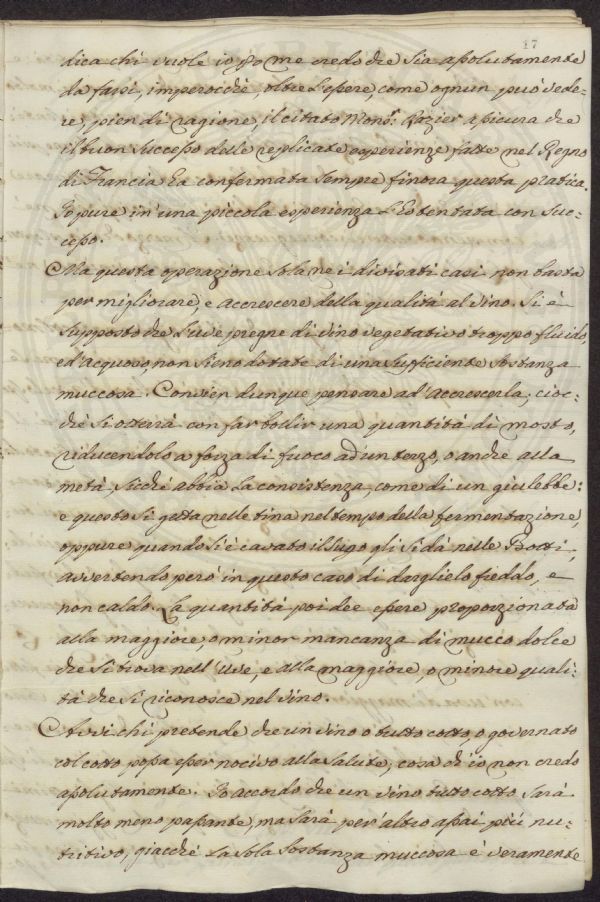 17
dica chi vuole io p me credo che sia assolutamente
da farsi, imperocchè, oltre l'essere, come ognun può vede=
re, pien di ragione, il citato Mons.r Rozier assicura che
il buon successo delle replicate esperienze fatte nel Regno
di Francia ha confermata sempre finora questa pratica.
Io pure in una piccola esperienza l'ho tentata con suc=
cesso.
Ma questa operazione sola ne i divisati casi non basta
per migliorare, e accrescere della qualità al vino. Si è
supposto che l'uve pregne di vino vegetativo troppo fluido,
ed acquoso, non sieno dotate di una sufficiente sostanza
muccosa. Convien dunque pensare ad accrescerla; cioc=
chè si otterrà con far bollir una quantità di mosto,
riducendolo a forza di fuoco ad un terzo, o anche alla
metà, sicchè abbia la consistenza, come di un giulebbe:
e questo si getta nelle tina nel tempo della fermentazione,
oppure quando si è cavato il sugo gli si dà nelle Botti,
avvertendo però in questo caso di darglielo freddo, e
non caldo. La quantità poi dee essere proporzionata
alla maggiore, o minor mancanza di mucco dolce
che si trova nell'uve, e alla maggiore, o minore quali=
tà che si riconosce nel vino.
Avvi chi pretende che un vino o tutto cotto, o governato
col cotto possa esser nocivo alla salute, cosa ch'io non credo
assolutamente. Io accordo che un vino tutto cotto sarà
molto meno passante, ma sarà per altro assai più nu=
tritivo, giacchè la sola sostanza muccosa è veramente